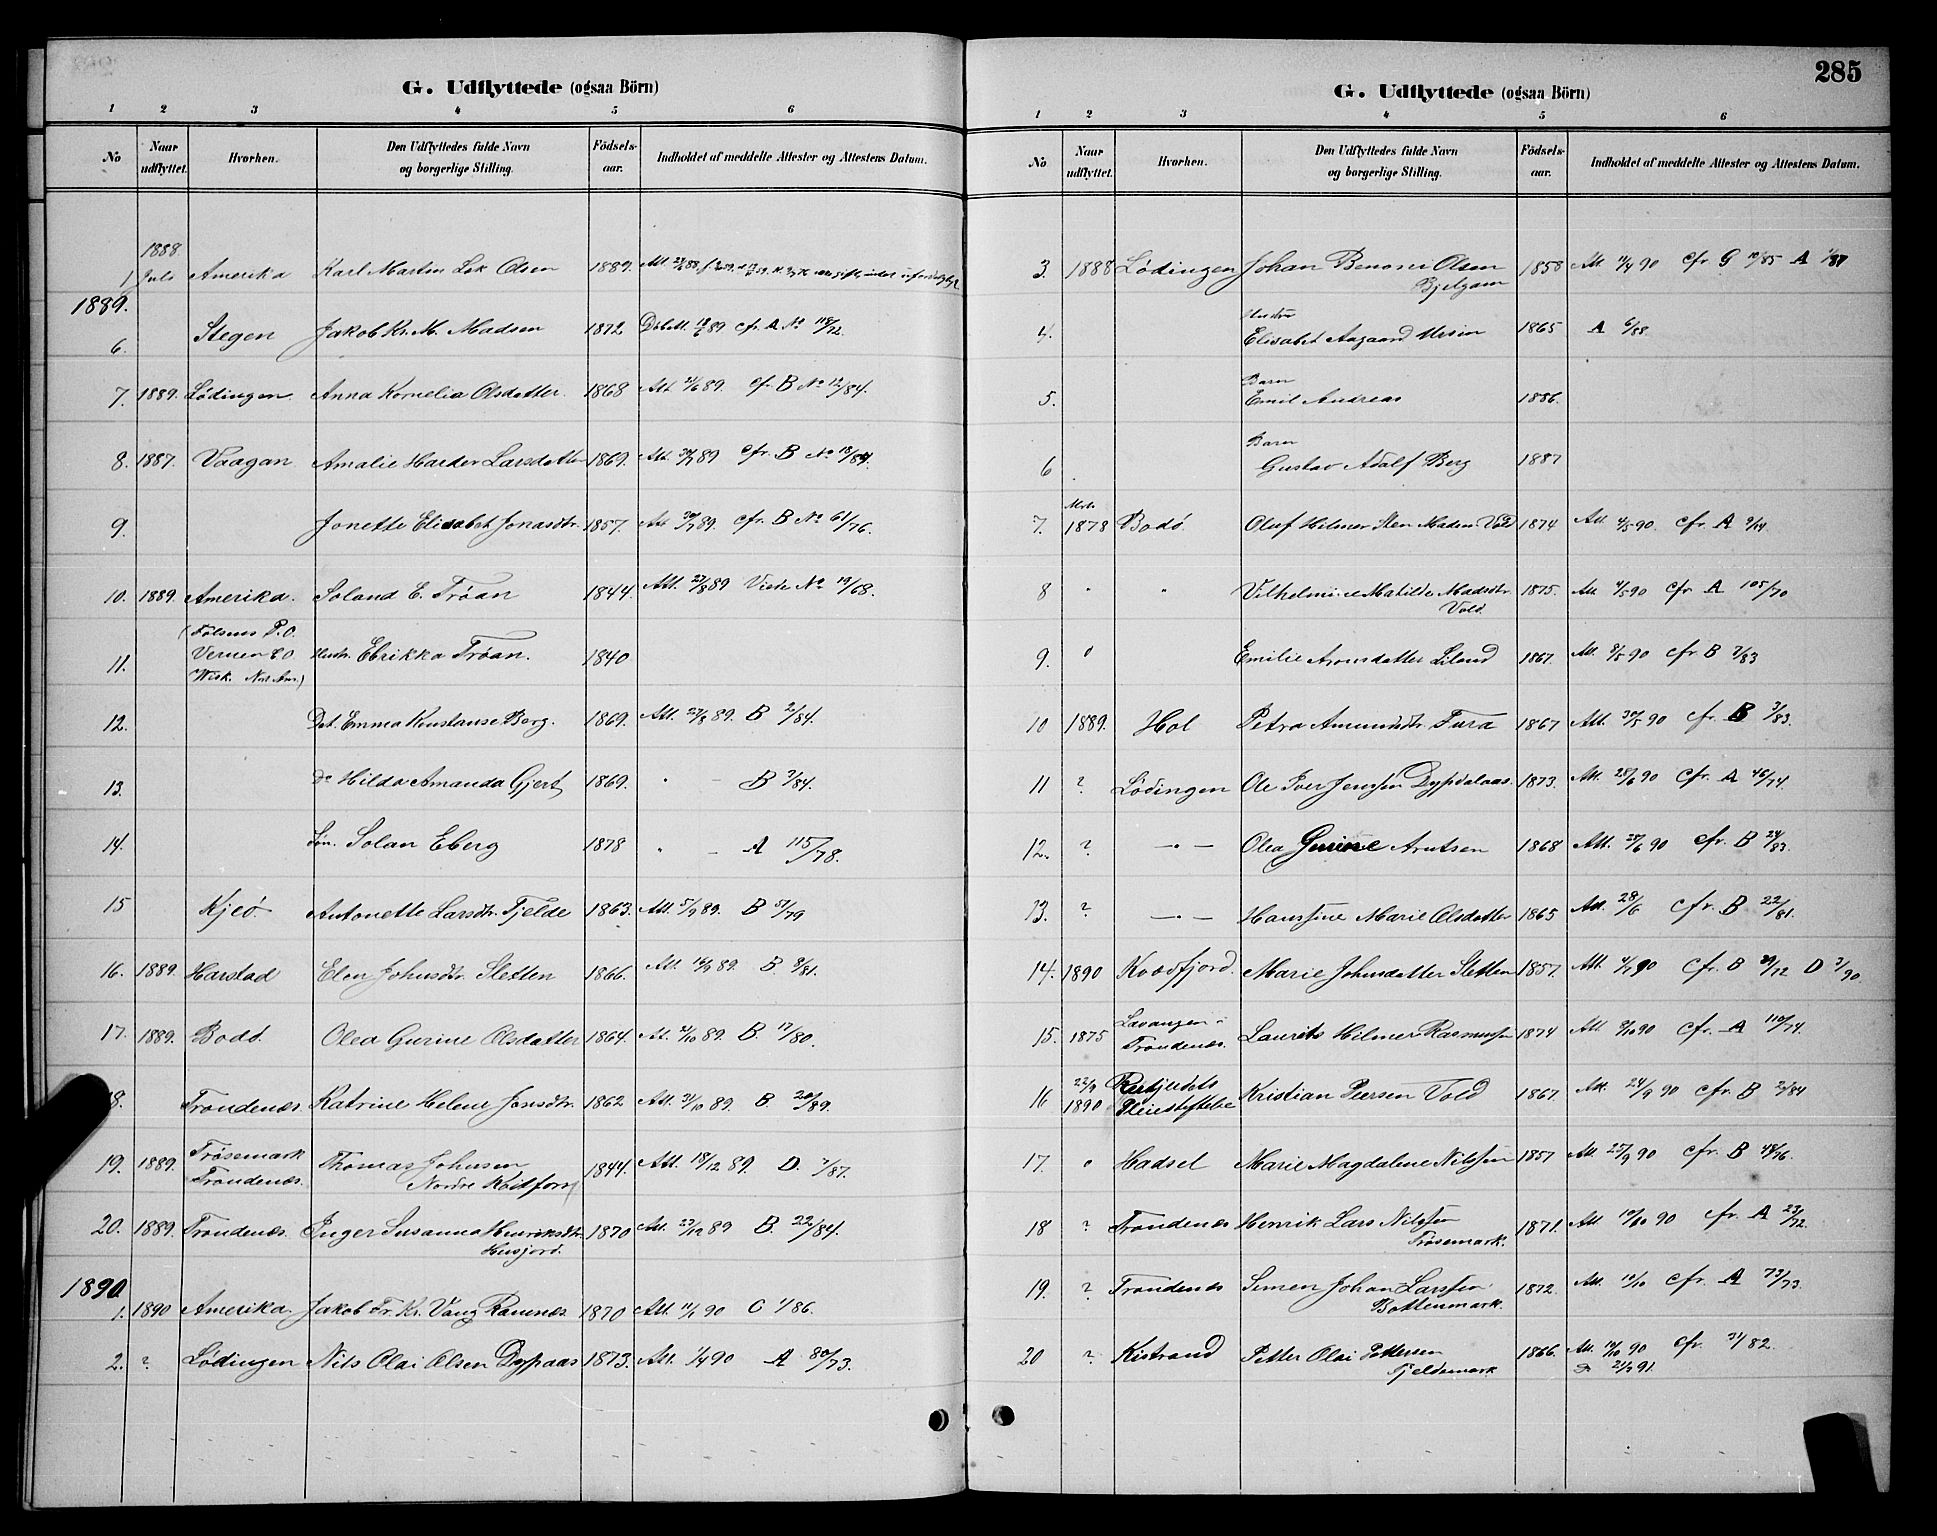 G. Udflyttede (ogsaa Börn)
1 2 3 4 5 6
No Naar udflyttet. Hvorhen. Den Udflyttedes fulde Navn og borgerlige Stilling. Födsels-aar. Indholdet af meddelte Attester og Attestens Datum.
1888
1 Juls Amerika Karl Martin Lok Olsen 1889. Att
1889.
6. Stegen Jakob Kr. M. Madsen 1872 cfr. A No 118/72.
7. 1889. Lödingen Anna Kornelia Olsdatter. 1868 Att 21/6 89. cf. B No 12/84.
8. 1887. Vaagan Amalie Harder Larsdatter 1869. Att. 30/7 89 cfr. B No 13/84.
9. Jonette Elisabet Jonasdtr. 1857. Att 30/7 89. cfr. B No 61/76.
10. 1889. Amerika. Soland E. Tröan 1844. Att. 27/8 89 Viede No 19/68.
11. (Folsens P.O. Hustr. Ebrikka Tröan. 1840
Vernen C.O.
Wisk. Nor. Am.)
12. Dat. Emma Konstanse Berg. 1869. Att. 27/8 89. B 2/84.
13. Do Hilda Amanda Gjert 1869. " - B 3/84.
14. Sön. Solan Eberg 1878 " - A 115/78.
15 Kjeö. Antonette Larsdtr. Fjelde 1863. Att. 5/9 89. B 51/79
16. 1889. Harstad Elen Johnsdtr. Sletten 1866. Att. 14/9 89. B. 8/81.
17. 1889. Bodö. Olea Gurine Olsdatter 1864. At. 21/10 89. B. 17/80.
18. Trondenæs Katrine Helene Jonsdtr. 1862 Att. 31/10 89. B. 20/89.
19. 1889. Trösemark Thomas Johnsen 1844. Att. 18/12 89. D. 7/87.
Trondenæs. Nordre
20. 1889. Trondenæs. Inger Susanna Henriksdtr. 1870 Att. 23/12 89 B. 22/84.
Husjord.
1890
1. 1890 Amerika. Jakob Fr. Kr. Vang Ranenæs 1870 Att. 11/1 90 C 1/86.
2. ? Lödingen Nils Olai Olsen Dypaas 1873. Att. 1/4 90 A 80/73.
285
G. Udflyttede (ogsaa Börn)
1 2 3 4 5 6
No Naar udflyttet. Hvorhen. Den Udflyttedes fulde Navn og borgerlige Stilling. Födsels-aar. Indholdet af meddelte Attester og Attestens Datum.
3. 1888 Lödingen Johan Benoni Olsen 1858 Att. 11/4 90 cfr G 10/85 A 1/87
4. Hustru
Elisabet Aagaard 1865 A 6/88.
5. Barn
Emil Andreas 1886.
6 Barn
Gustav Adolf Berg 1887
7. 1878 Bodö. Oluf Hilmer Sten Madsen Vold 1874 Att. 4/5 90. cfr. A 9/74.
8 " " Vilhelmine Matilde Madsdtr. 1875. Att. 4/5 90 cfr A 105/70
Vold.
9. " Emilie Aronsdatter Liland 1867. Att. 8/5 90 cfr. B 7/83
10 1889. Hol Petra Amundsdtr. Fura 1867 Att. 30/5 90 cfr. B 3/83.
11 ? Lödingen Ole Iver Jenssen Dypdalaas 1873. Att. 28/6 90 cfr. A 46/74.
12. ? — " — Olea Gurine Arntsen 1868 Att. 28/6 90 cfr. B 24/83.
13. ? — " — Hanssine Marie Olsdatter 1865 Att. 28/6 cfr. B 22/81.
14. 1890 Kvædfjord. Marie Johnsdatter Sletten 1857. Att. 4/7 90 cfr. B 29/72 D 3/90.
15. 1875 Lavangen i Laurits Hilmer Rasmussen 1874 Att. 9/10 90 cfr. A 110/74.
Trondenæs.
16 22/9 1890 Kristian Peersen Vold 1867. Att. 24/9 90 cfr. B 2/84
17. " Hadsel Marie Magdalene Nilssen 1857 Att. 25/9 90 cfr. B 48/76.
18 ? Trondenæs Henrik Lars Nilssen 1871. Att 10/10 90 cfr. A 23/72.
Trösemark.
19. ? Trondenæs Simen Johan Larssen 1872. Att. 10/10 cfr. A 73/73.
Bottenmark.
20 ? Kistrand Petter Olai Pettersen 1866. Att. 14/10 90 cfr. 31/82.
Fjeldsmark 21/3 91